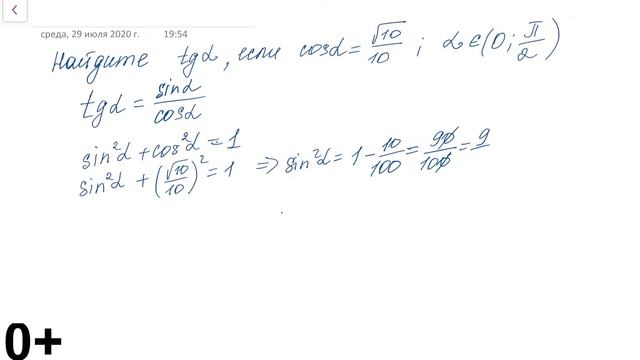 среда, 29 июля 2020 г. 19:54
Найдите tgα, если cosα = √10/10 ; α ∈ (0; π/2)
tgα = sinα/cosα
sin²α + cos²α = 1
sin²α + (√10/10)² = 1 => sin²α = 1 - 10/100 = 90/100 = 9/
0+